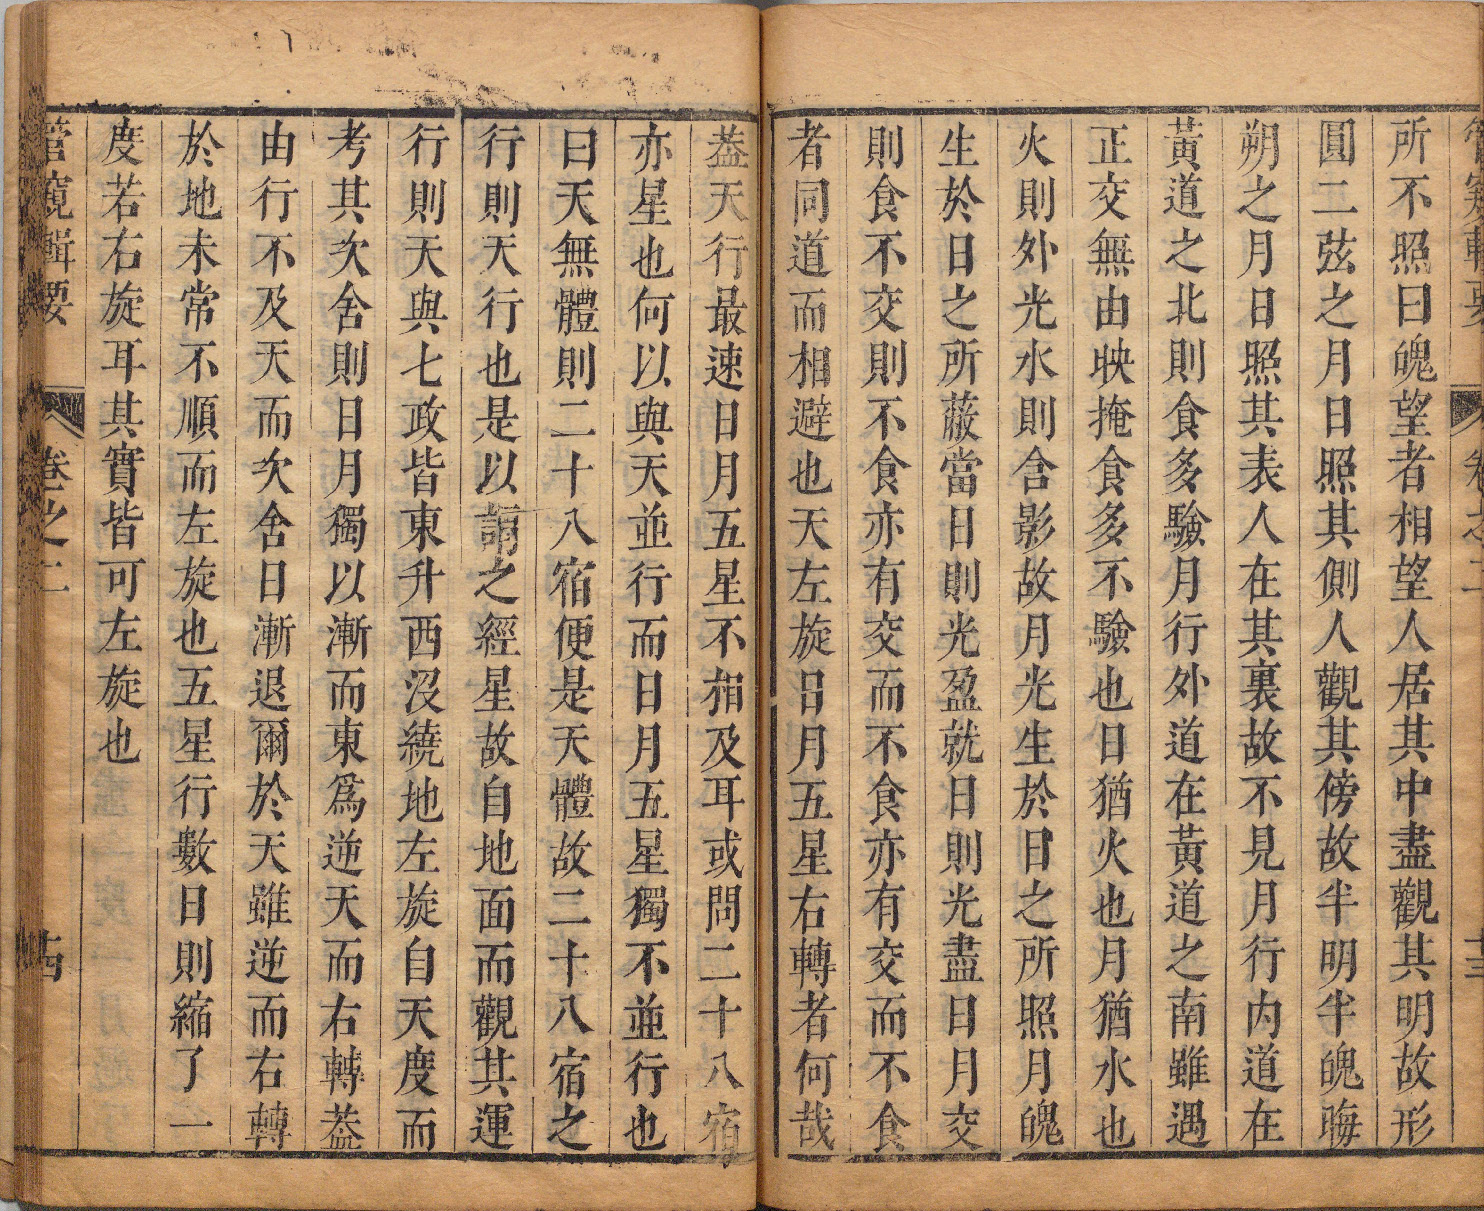 管窺輯要
卷之二
十三
所不照曰魄望者相望人居其中盡觀其明故形
圓二弦之月日照其側人觀其傍故半明半魄晦
朔之月日照其表人在其裏故不見月行内道在
黃道之北則食多驗月行外道在黃道之南雖遇
正交無由映掩食多不驗也日猶火也月猶水也
火則外光水則含影故月光生於日之所照月魄
生於日之所蔽當日則光盈就日則光盡日月交
則食不交則不食亦有交而不食亦有交而不食
者同道而相避也天左旋日月五星右轉者何哉
葢天行最速日月五星不相及耳或問二十八宿
亦星也何以與天並行而日月五星獨不並行也
曰天無體則二十八宿便是天體故二十八宿之
行則天行也是以謂之經星故自地面而觀其運
行則天與七政皆東升西沒繞地左旋自天度而
考其次舍則日月獨以漸而東爲逆天而右轉葢
由行不及天而次舍日漸退爾於天雖逆而右轉
於地未常不順而左旋也五星行數日則縮了一
度若右旋耳其實皆可左旋也
管窺輯要
卷之二
十四